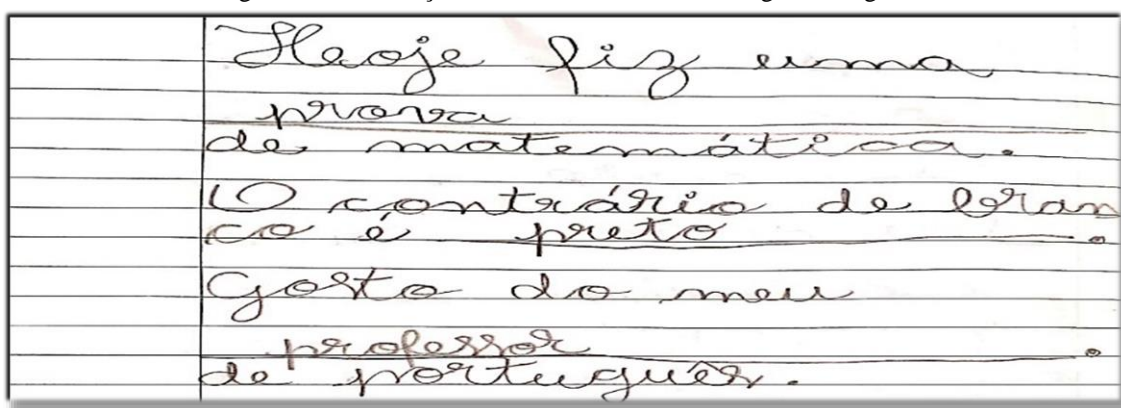 Hoje fiz uma
prova
de matemática.
O contrário de bran
co é preto.
Gosto do meu
professor.
de português.